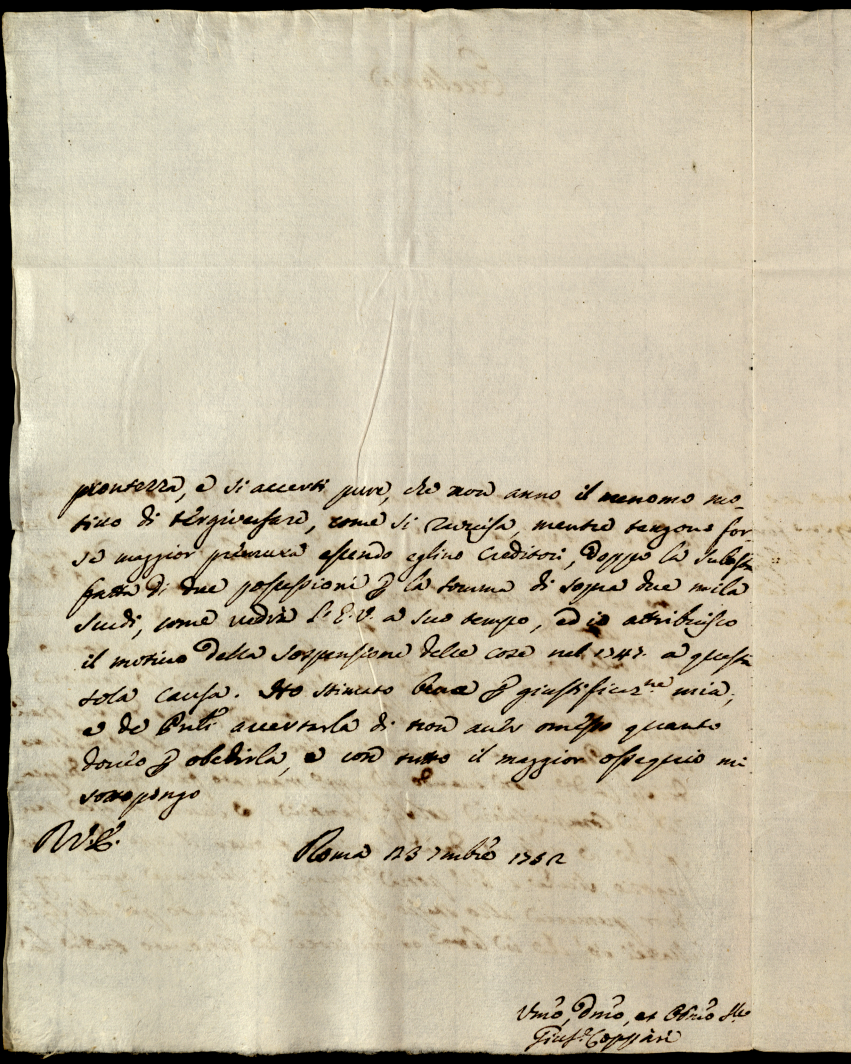 prontezza, e si accerti pure, che non anno il menomo mo-
tivo di tergiversare, come si ravvisa, mentre tengono for-
se maggior premura essendo eglino Creditori, doppo la subasta
fatta di due possessioni p la somma di sopra due mila
scudi, come vedrà L'E.V. a suo tempo, ed io attribuisco
il motivo della sospensione delle cose nel 1747. a questa
sola causa. Ho stimato bene p giustificaz.ne mia,
e de accertarla di non aver omesso quanto
dovevo p obedirla, e con tutto il maggior ossequio mi
sottopongo
Roma 23 7mbre 1752
Umo, Dmo, et Obmo
Gius.e Coppari